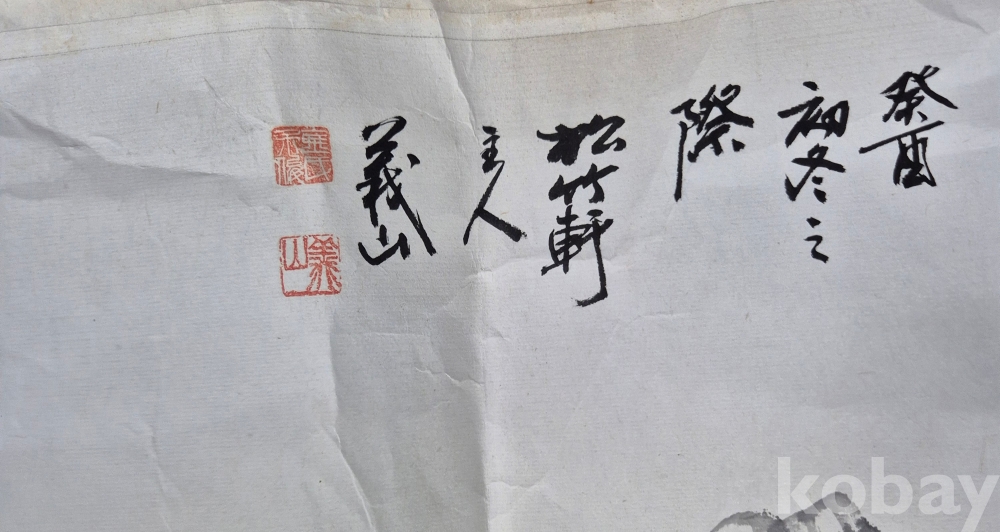 癸酉
初冬之
際
松竹軒
主人
義山
義山
kobay